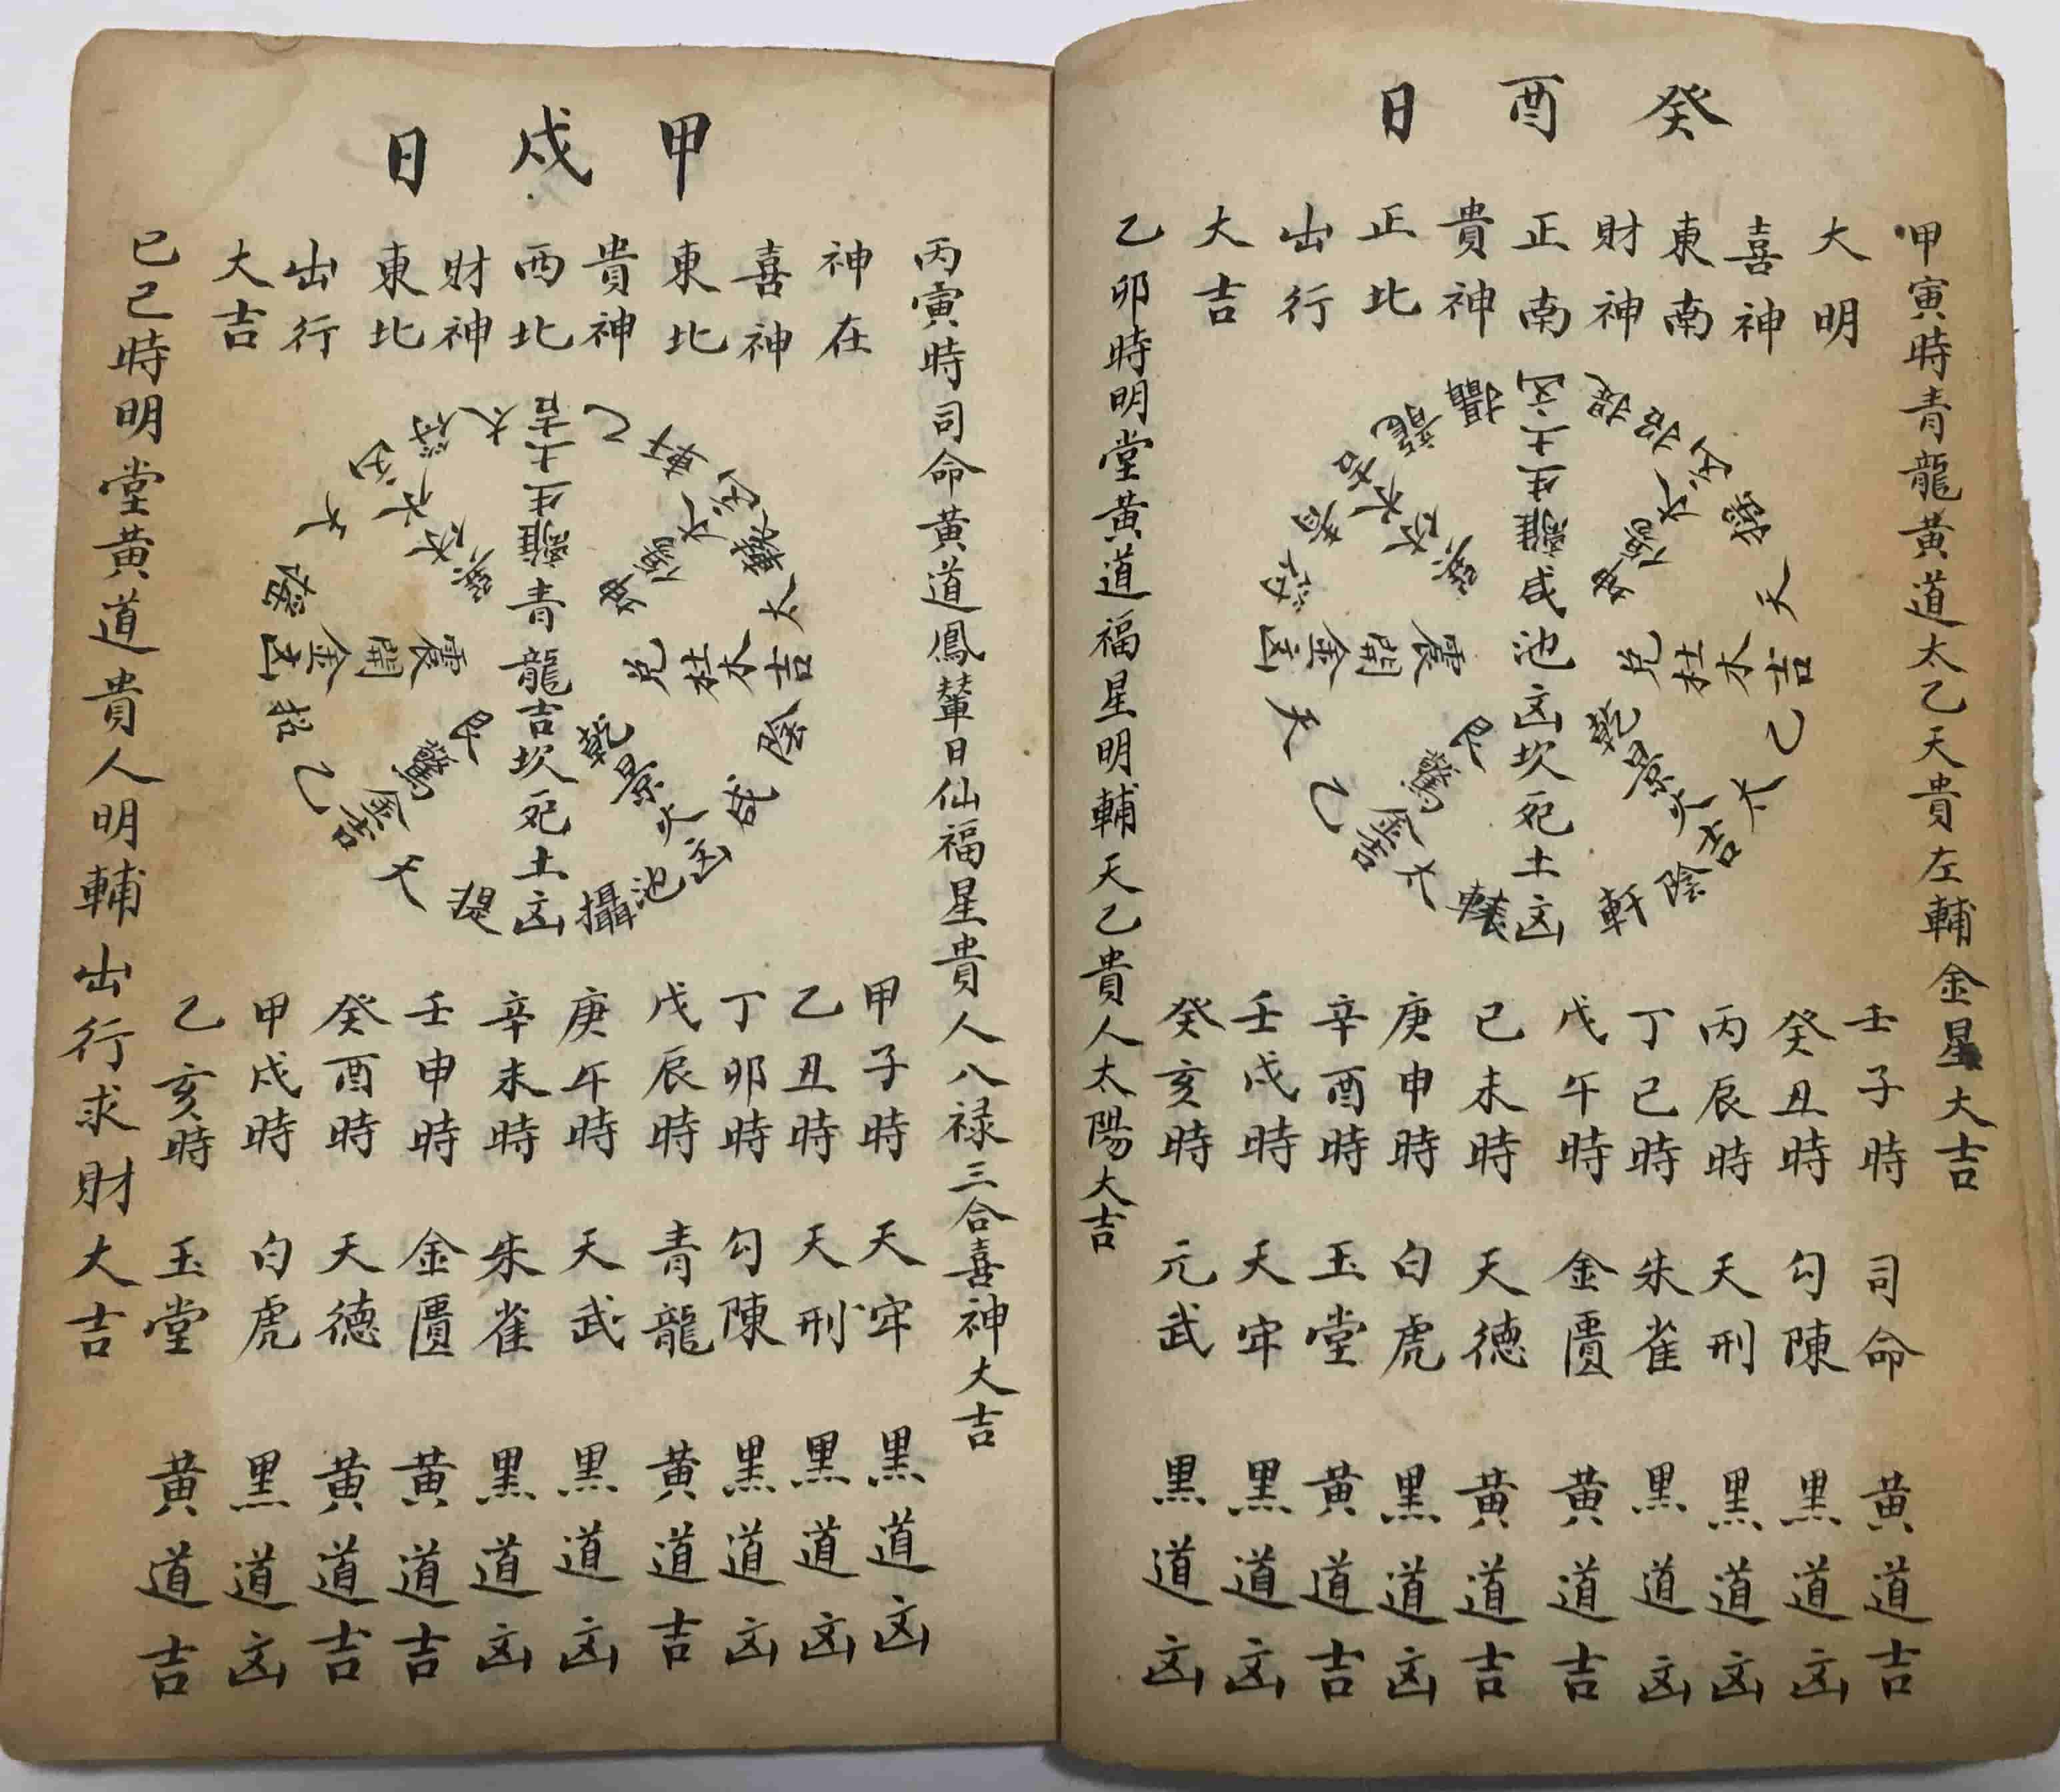 癸酉日
甲寅時青龍黃道太乙天貴左輔金星大吉
大明
喜神
東南
財神
正南
貴神
正北
出行
大吉
乙卯時明堂黃道福星明輔天乙貴人太陽大吉
咸池凶坎死土凶
離生土凶
兌杜木吉
乾景火吉
艮驚金吉
震開金凶
壬子時 司命 黃道吉
癸丑時 勾陳 黑道凶
丙辰時 天刑 黑道凶
丁巳時 朱雀 黑道凶
戊午時 金匱 黃道吉
己未時 天德 黃道吉
庚申時 白虎 黑道凶
辛酉時 玉堂 黃道吉
壬戌時 天牢 黑道凶
癸亥時 元武 黑道凶
甲戌日
丙寅時司命黃道鳳輦日仙福星貴人八禄三合喜神大吉
神在
喜神
東北
貴神
西北
財神
東北
出行
大吉
己巳時明堂黃道貴人明輔出行求財大吉
青龍吉坎死土凶
離生土吉
兌杜木吉
乾景火凶
艮驚金吉
震開金凶
甲子時 天牢 黑道凶
乙丑時 天刑 黑道凶
丁卯時 勾陳 黑道凶
戊辰時 青龍 黃道吉
庚午時 天武 黑道凶
辛未時 朱雀 黑道凶
壬申時 金匱 黃道吉
癸酉時 天德 黃道吉
甲戌時 白虎 黑道凶
乙亥時 玉堂 黃道吉